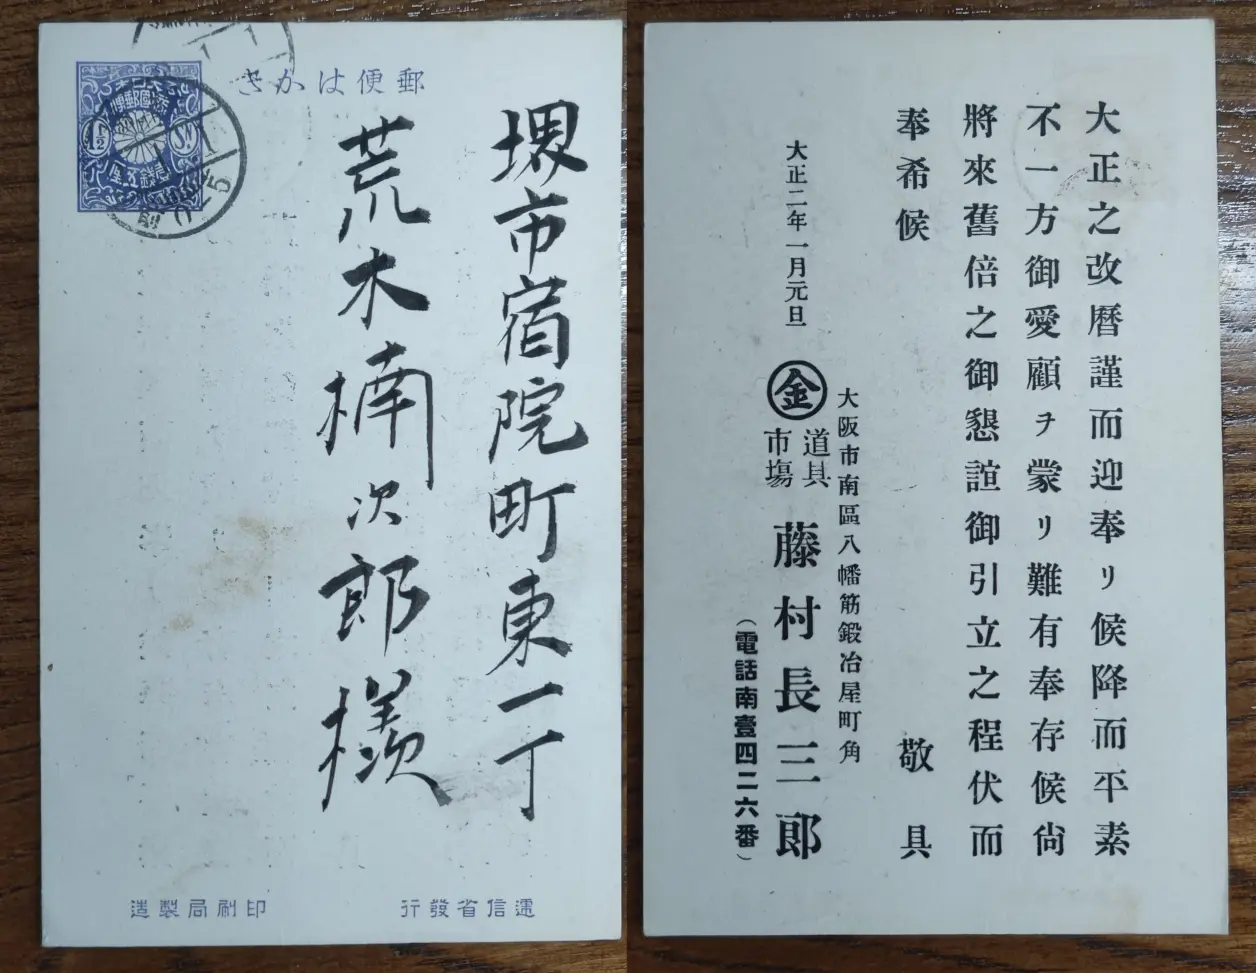 郵便はかき
大日本帝國郵便
1½
Sn.
壹錢五厘
堺市宿院町東一丁
荒木楠次郎様
逓信省發行
印刷局製造
大正之改曆謹而迎奉リ候降而平素
不一方御愛顧ヲ蒙リ難有奉存候尙
將來舊倍之御懇誼御引立之程伏而
奉希候
敬具
大正二年一月元旦
大阪市南區八幡筋鍛冶屋町角
金
道具
市塲
藤村長三郎
(電話南壹四二六番)